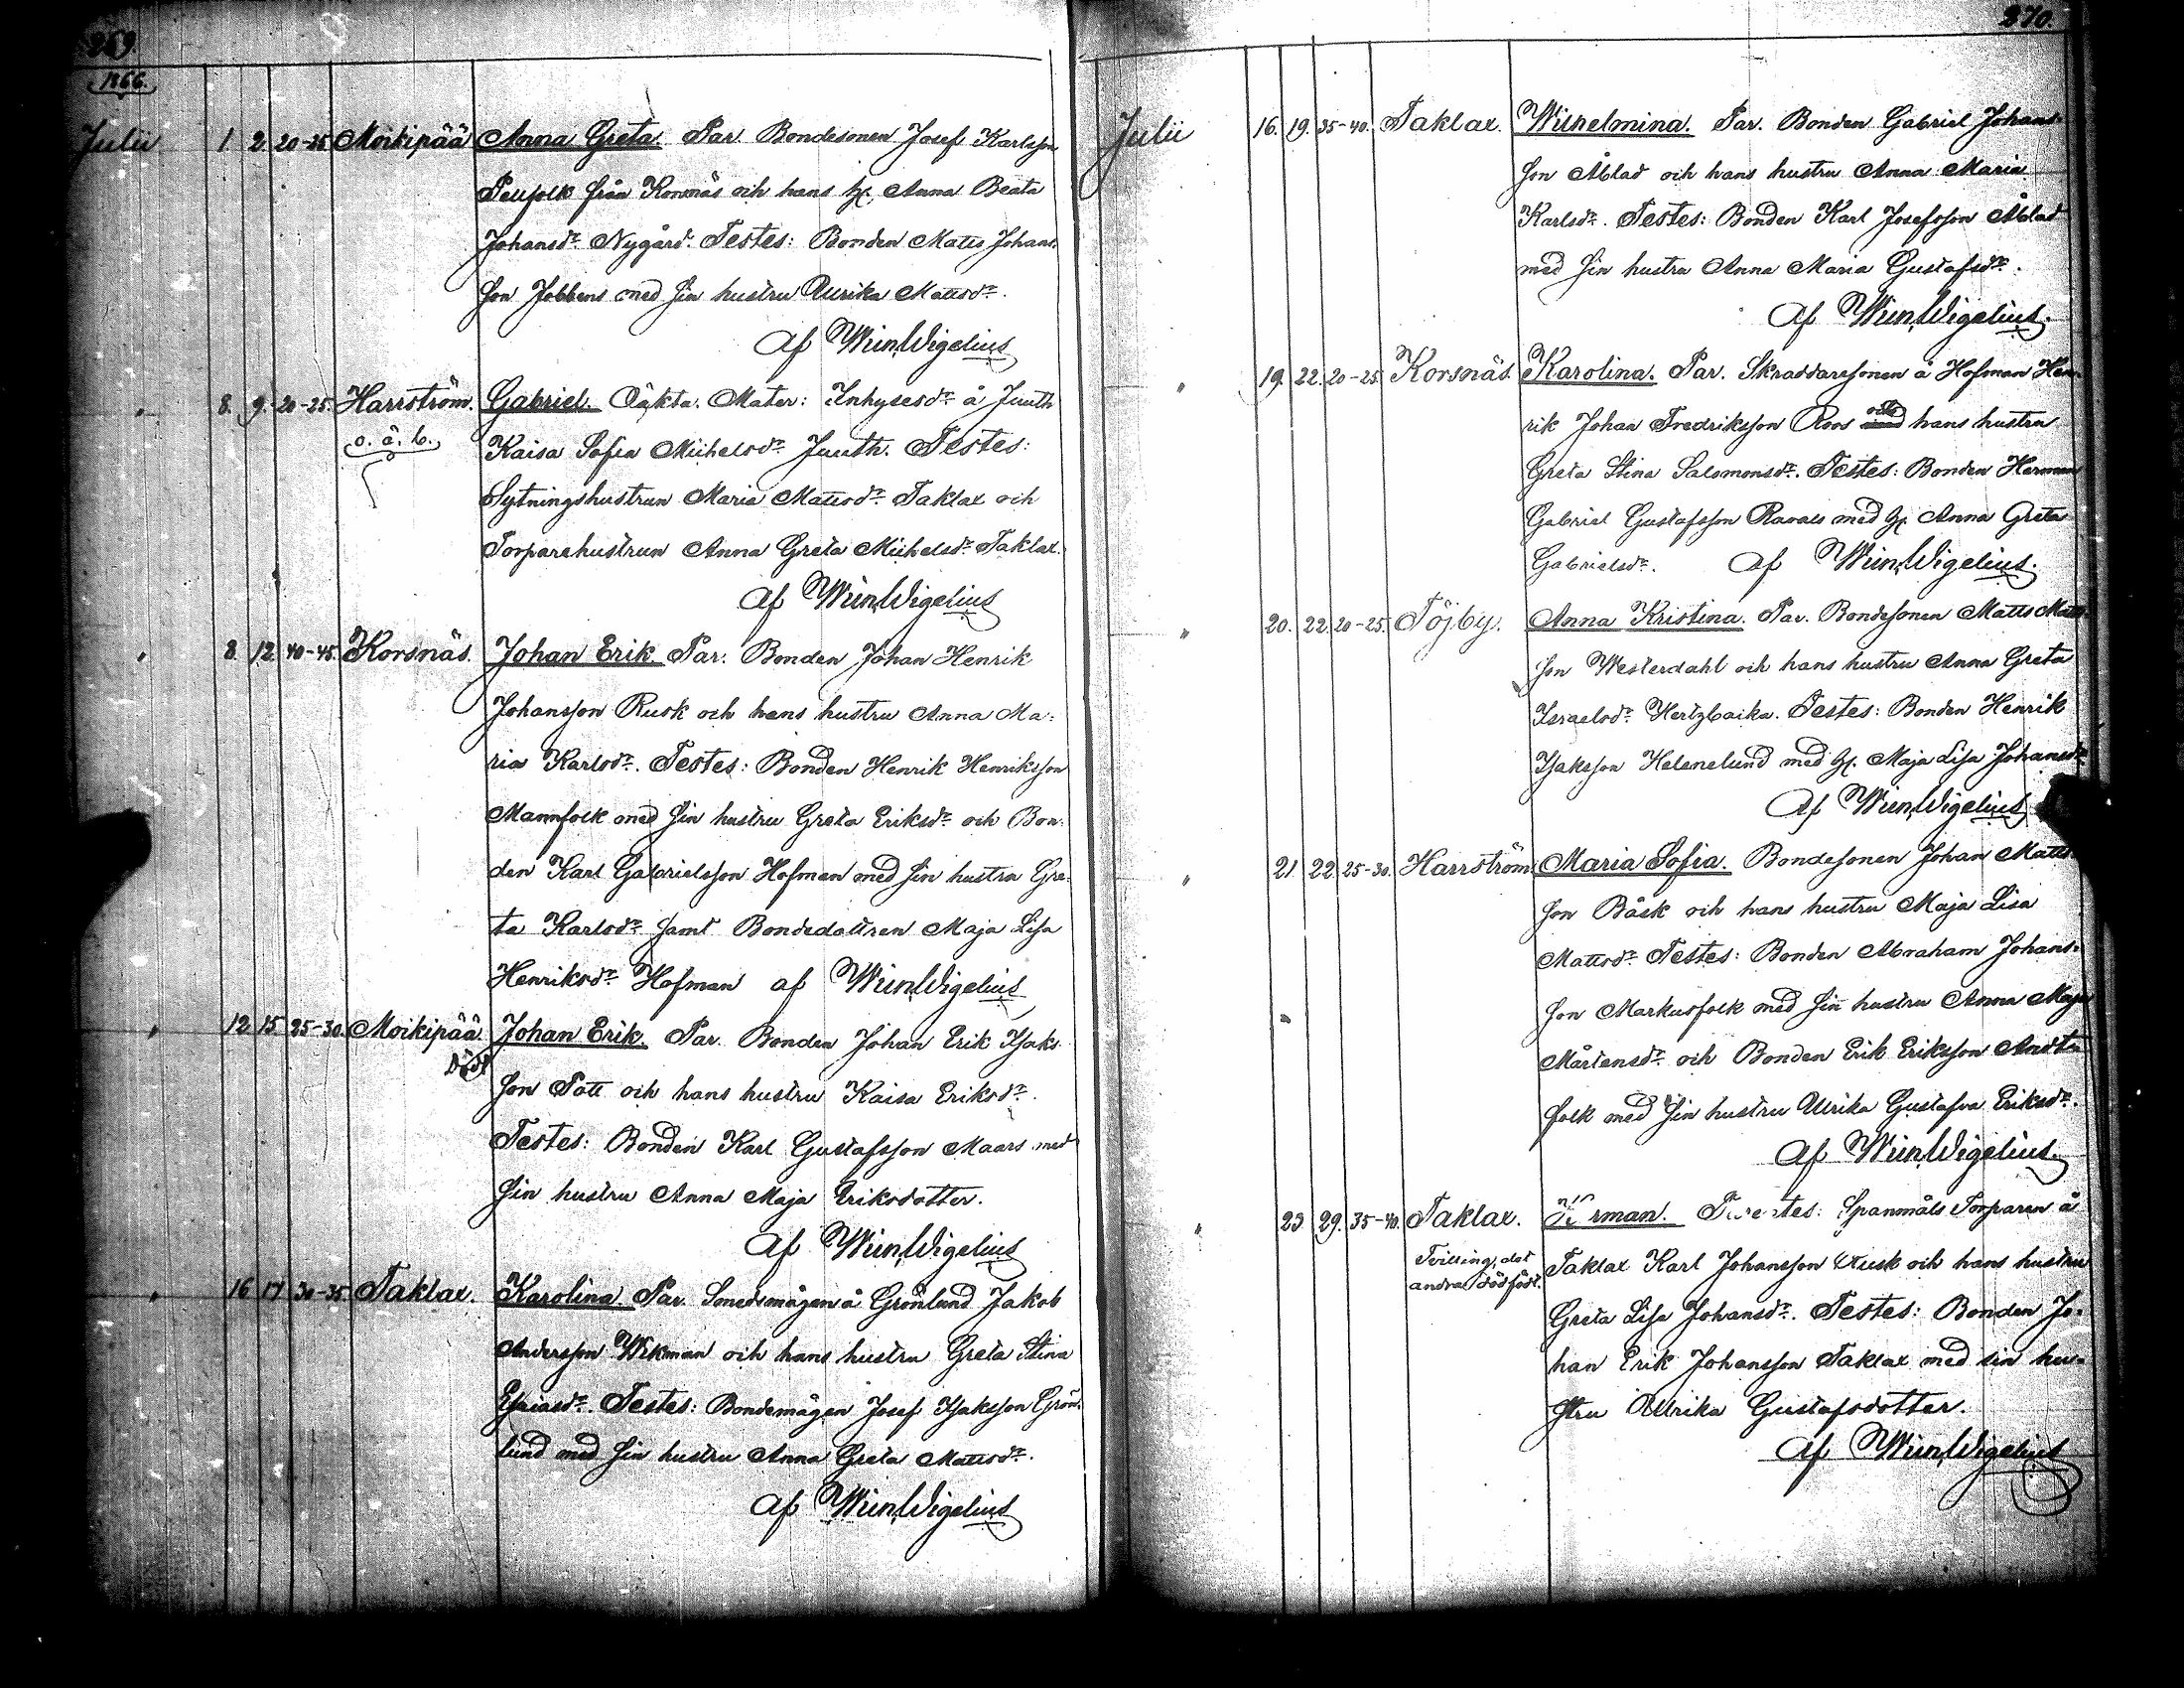 269.
1866.
Julii 1. 2. 20-25. Moikipää Anna Greta. Par. Bondesonen Josef Karlsson
från Korsnäs och hans h. Anna Beata
Johansdr. Nygård. Testes: Bonden Matts Johans-
son Jobbens med sin hustru Ulrika Mattsdr.
Af Wm Wigelius
" 8. 9. 20-25. Harrström. Gabriel. Oäkta. Mater: Inhysesdr. å Juuth
o. ä. b. Kaisa Sofia Michelsdr. Juuth. Testes:
Sytningshustrun Maria Mattsdr. Taklax och
Torparehustrun Anna Greta Michelsdr. Taklax.
Af Wm Wigelius
" 8 12 40-45. Korsnäs. Johan Erik. Par. Bonden Johan Henrik
Johansson Rusk och hans hustru Anna Ma-
ria Karlsdr. Testes: Bonden Henrik Henriksson
Mannfolk med sin hustru Greta Eriksdr. och Bon-
den Karl Gabrielsson Hofman med sin hustru Gre-
ta Karlsdr. samt Bondedottren Maja Lisa
Henriksdr. Hofman af Wm Wigelius
" 12 15 25-30. Moikipää Johan Erik. Par. Bonden Johan Erik Isaks-
Död son Pott och hans hustru Kaisa Eriksdr.
Testes: Bonden Karl Gustafsson Maars med
sin hustru Anna Maja Eriksdotter.
Af Wm Wigelius
" 16 17 30-35 Taklax. Karolina. Par. Sonemågen å Grönlund Jakob
Andersson Wikman och hans hustru Greta Stina
Esaiasdr. Testes: Bondemågen Josef Isaksson Grön-
lund med sin hustru Anna Greta Mattsdr.
Af Wm Wigelius
270.
Julii 16. 19. 35-40. Taklax. Wilhelmina. Par. Bonden Gabriel Johans-
son Åblad och hans hustru Anna Maria
Karlsdr. Testes: Bonden Karl Josefsson Åblad
med sin hustru Anna Maria Gustafsdr.
Af Wm Wigelius.
" 19. 22. 20-25. Korsnäs. Karolina. Par. Skraddarsonen å Hofman Hen-
rik Johan Fredriksson Roos och hans hustru
Greta Stina Salomonsdr. Testes: Bonden Herman
Gabriel Gustafsson Ravals med h. Anna Greta
Gabrielsdr. Af Wm Wigelius.
" 20. 22. 20-25. Töjby. Anna Kristina. Par. Bondesonen Matts Matts-
son Westerdahl och hans hustru Anna Greta
Israelsdr. Hertzbacka. Testes: Bonden Henrik
Isaksson Helenelund med h. Maja Lisa Johansdr.
Af Wm Wigelius
" 21 22 25-30. Harrström. Maria Sofia. Bondesonen Johan Matts-
son Bäsk och hans hustru Maja Lisa
Mattsdr. Testes: Bonden Abraham Johans-
son Markusfolk med sin hustru Anna Maja
Mårtensdr. och Bonden Erik Eriksson Andts-
folk med sin hustru Ulrika Gustafva Eriksdr.
Af Wm Wigelius.
" 23 29. 35-40. Taklax. Herman. Parentes: Spanmåls Torparen å
Tvilling, det Taklax Karl Johansson Rusk och hans hustru
andra dödfödt. Greta Lisa Johansdr. Testes: Bonden Jo-
han Erik Johansson Taklax med sin hu-
stru Ulrika Gustafsdotter.
Af Wm Wigelius